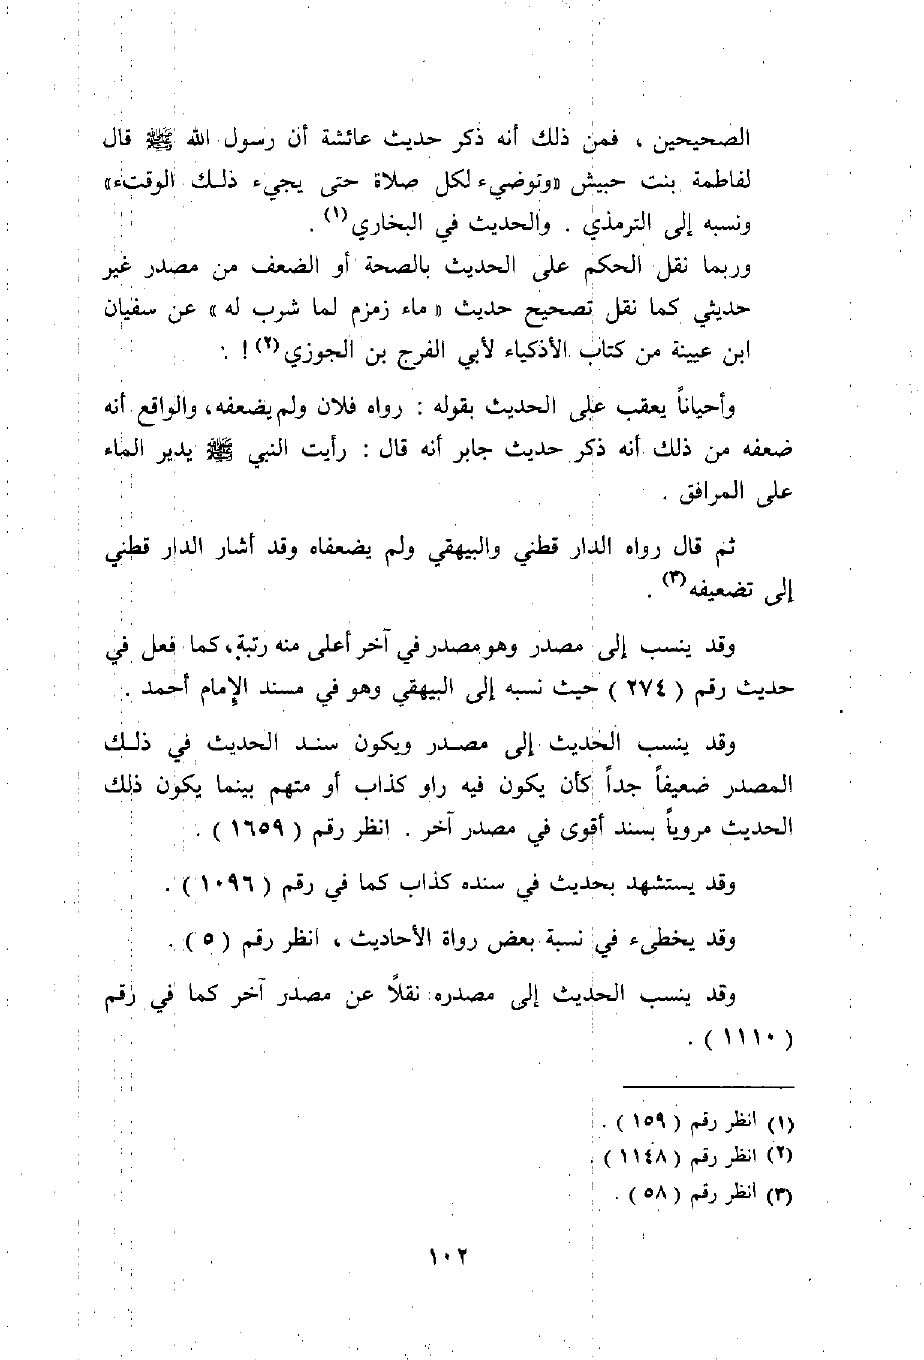 الصحيحين ، فمن ذلك أنه ذكر حديث عائشة أن رسول الله ﷺ قال
لفاطمة بنت حبيش «وتوضيء لكل صلاة حتى يجيء ذلك الوقتء»
ونسبه إلى الترمذي . والحديث في البخاري(١) .
وربما نقل الحكم على الحديث بالصحة أو الضعف من مصدر غير
حديثي كما نقل تصحيح حديث « ماء زمزم لما شرب له » عن سفيان
ابن عيينة من كتاب الأذكياء لأبي الفرج بن الجوزي(٢) ! .
وأحياناً يعقب على الحديث بقوله : رواه فلان ولم يضعفه، والواقع أنه
ضعفه من ذلك أنه ذكر حديث جابر أنه قال : رأيت النبي ﷺ يدير الماء
على المرافق .
ثم قال رواه الدار قطني والبيهقي ولم يضعفاه وقد أشار الدار قطني
إلى تضعيفه(٣) .
وقد ينسب إلى مصدر وهو مصدر في آخر أعلى منه رتبة، كما فعل في
حديث رقم ( ٢٧٤ ) حيث نسبه إلى البيهقي وهو في مسند الإمام أحمد .
وقد ينسب الحديث إلى مصدر ويكون سند الحديث في ذلك
المصدر ضعيفاً جداً كأن يكون فيه راو كذاب أو متهم بينما يكون ذلك
الحديث مروياً بسند أقوى في مصدر آخر . انظر رقم ( ١٦٥٩ ) .
وقد يستشهد بحديث في سنده كذاب كما في رقم ( ١٠٩٦ ) .
وقد يخطىء في نسبة بعض رواة الأحاديث ، انظر رقم ( ٥ ) .
وقد ينسب الحديث إلى مصدره نقلاً عن مصدر آخر كما في رقم
( ١١١٠ ) .
(١) انظر رقم ( ١٥٩ ) .
(٢) انظر رقم ( ١١٤٨ ) .
(٣) انظر رقم ( ٥٨ ) .
١٠٢